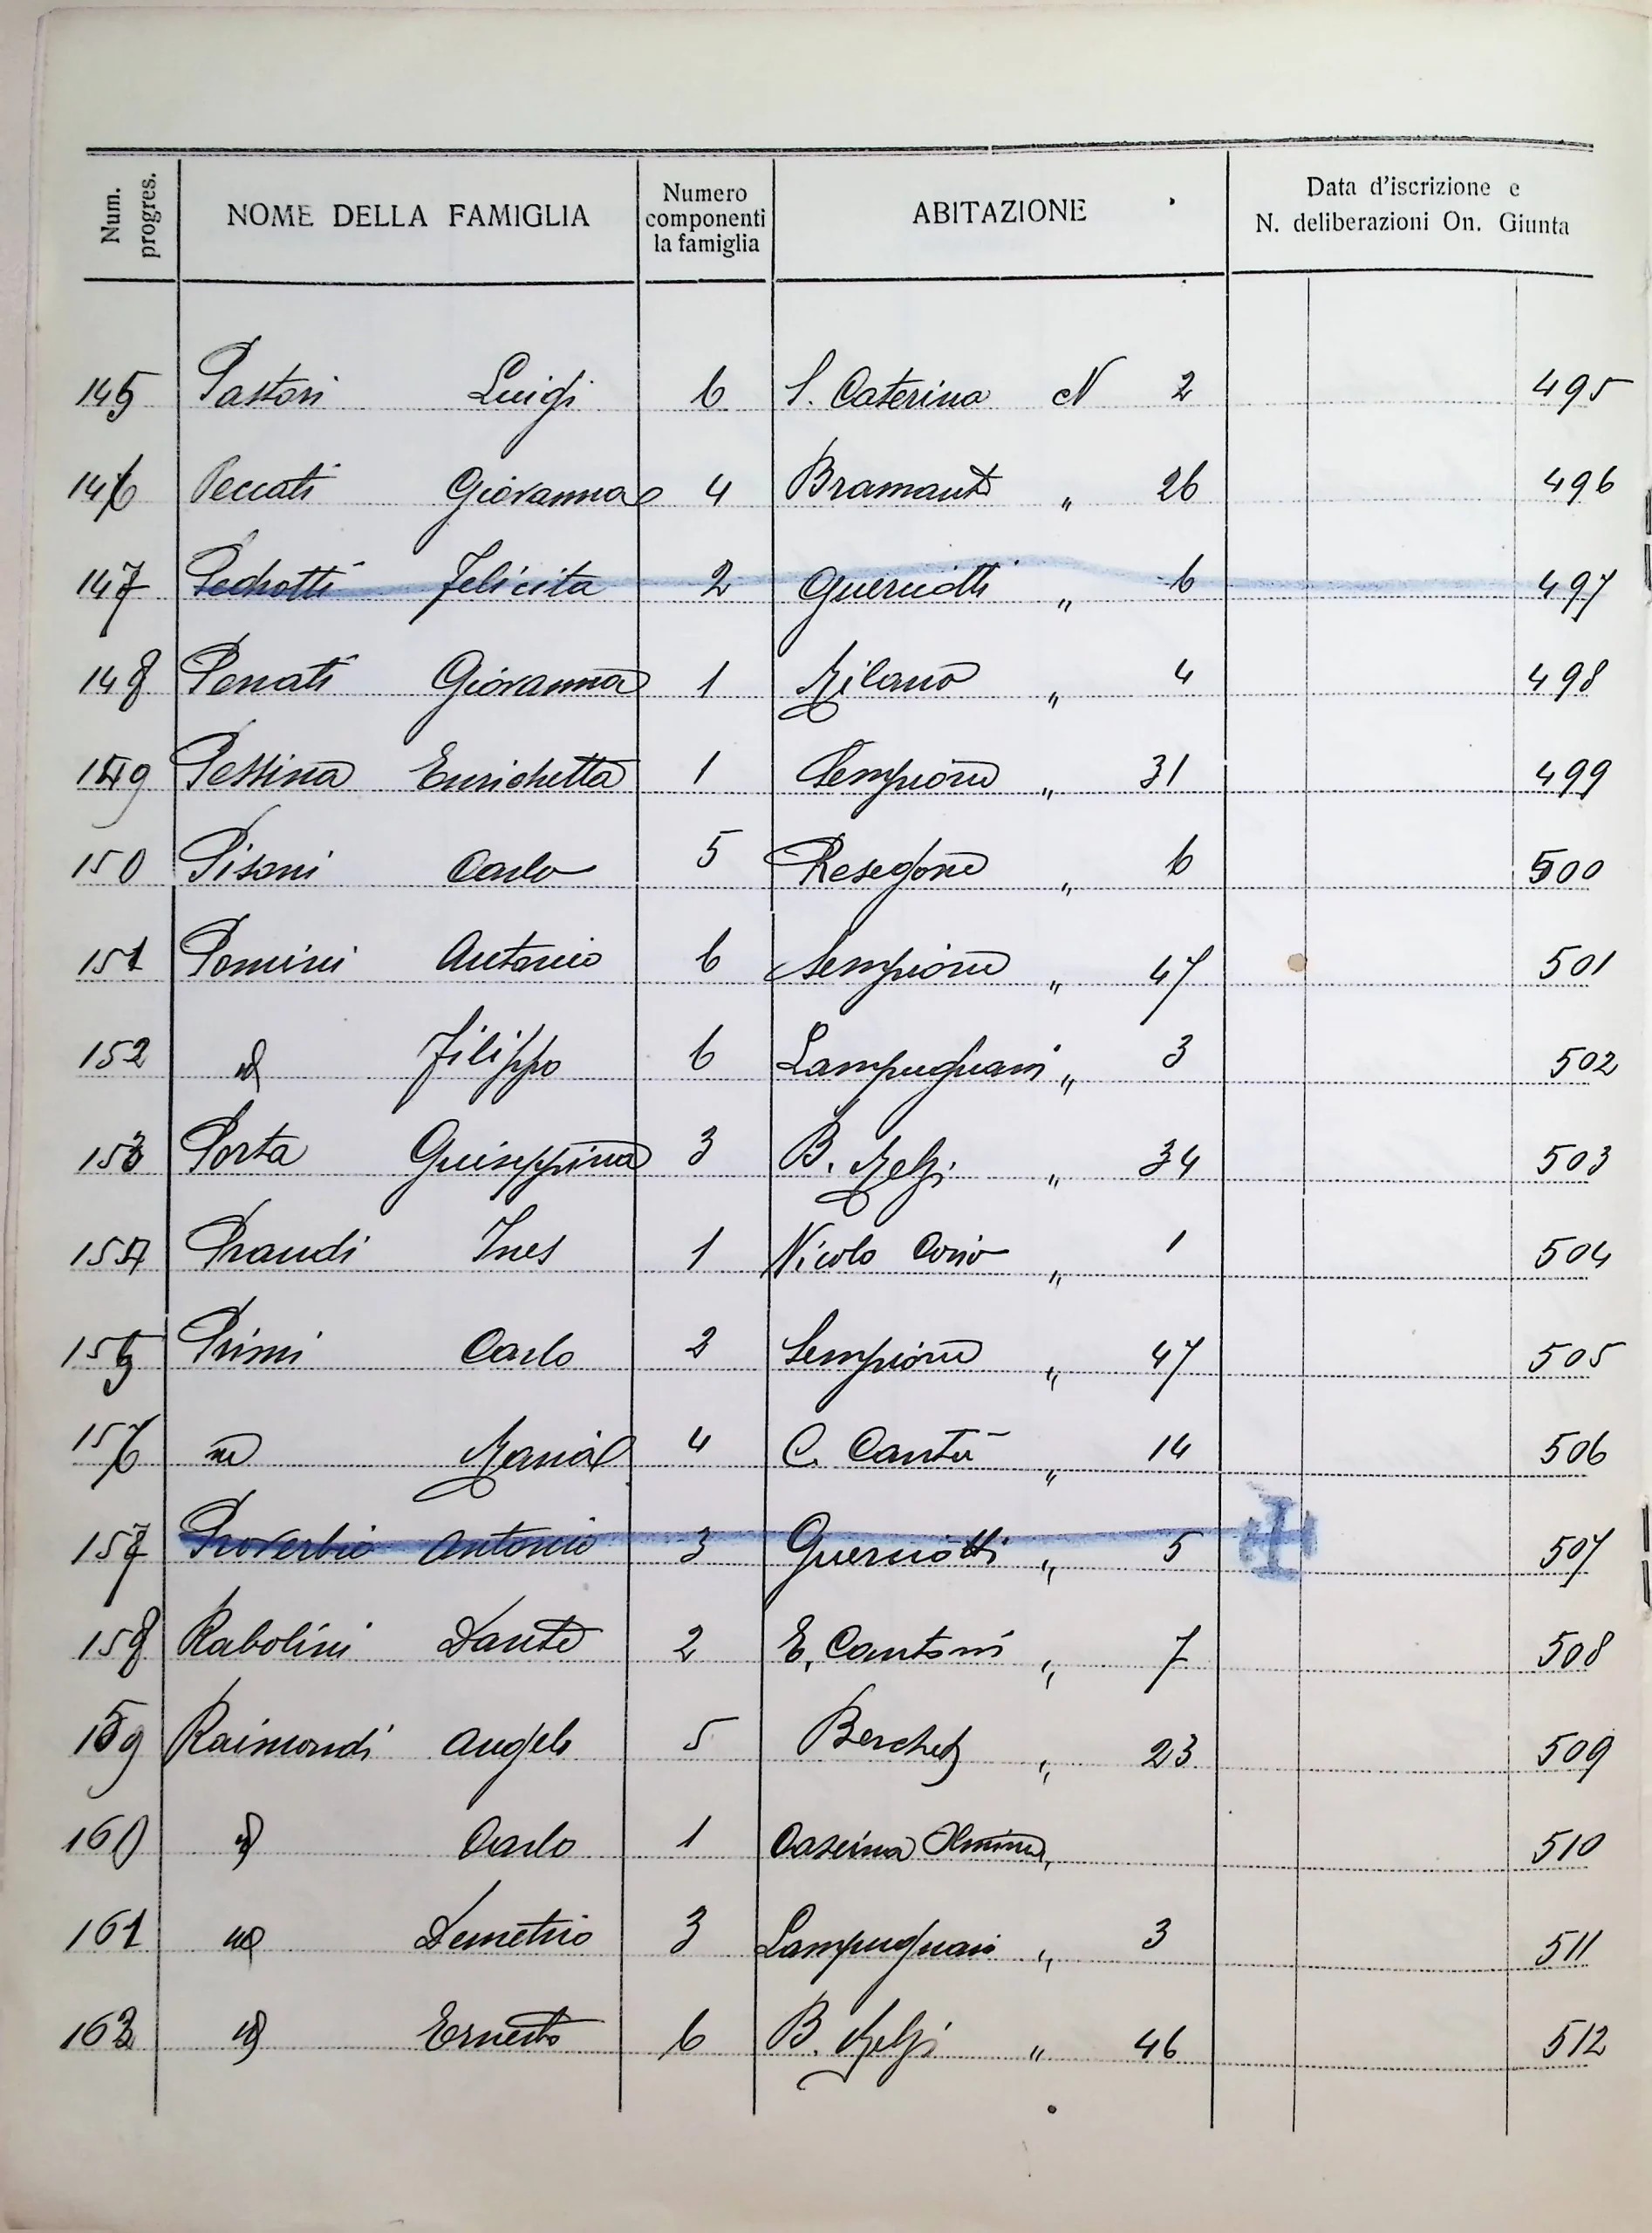 Num. progres. NOME DELLA FAMIGLIA Numero componenti la famiglia ABITAZIONE Data d'iscrizione e N. deliberazioni On. Giunta
145 Pastori Luigi 6 S. Caterina N 2 495
146 Peccati Giovanna 4 Bramante " 26 496
147 Pedrotti Felicita 2 Guerciotti " 6 497
148 Penati Giovanna 1 Milano " 4 498
149 Pessina Enrichetta 1 Sempione " 31 499
150 Pisani Carlo 5 Resegone " 6 500
151 Pomini Antonio 6 Sempione " 47 501
152 id Filippo 6 Lampugnani " 3 502
153 Porta Guiseppina 3 B. Melzi " 34 503
154 Prandi Ines 1 Nicolo Corio " 1 504
155 Primi Carlo 2 Sempione " 47 505
156 Maria 4 C. Cantù " 14 506
157 Proverbio Antonio 3 Guerciotti " 5 507
158 Rabolini Dante 2 E. Cantoni " 7 508
159 Raimondi Angelo 5 Berchet " 23 509
160 id Carlo 1 Cascina Olmina 510
161 id Demetrio 3 Lampugnani " 3 511
162 id Ernesto 6 B. Melzi " 46 512